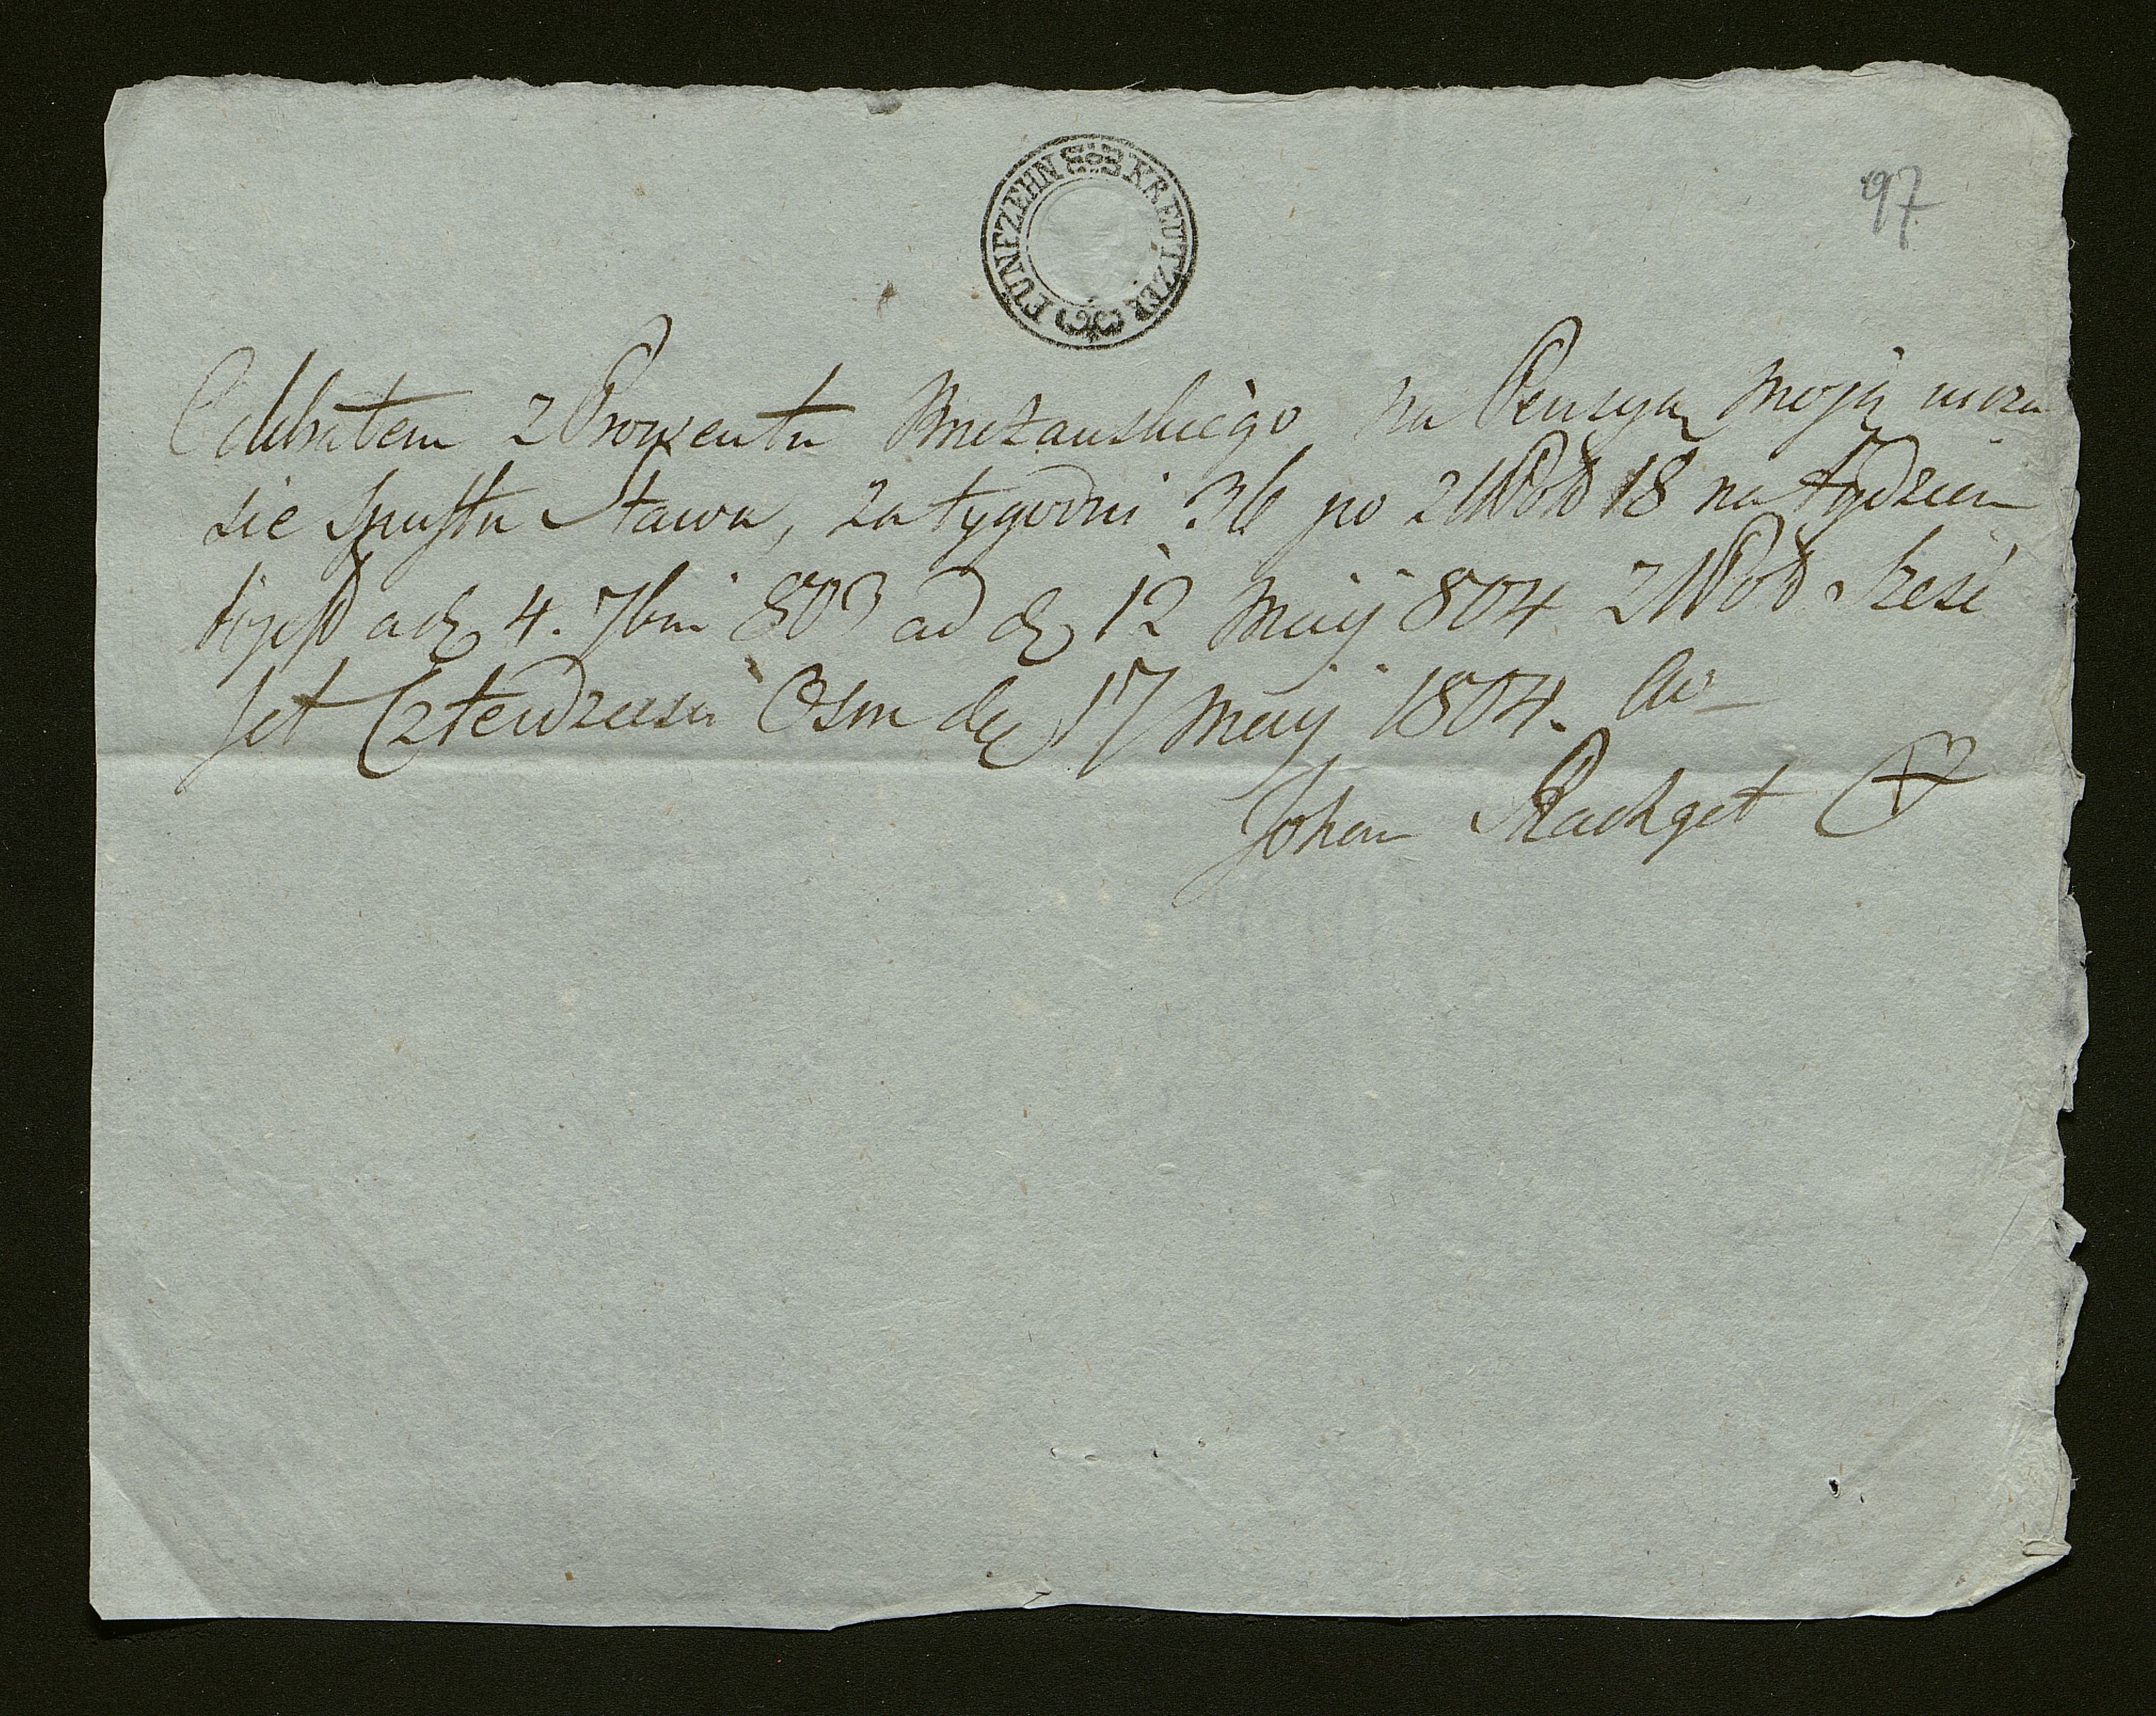 FUNFZEHN KREUTZER
97
Odebrałem z Prowentu Brzeżańskiego na Pensyą moją w cza
sie spustu stawu, za tygodni 36 po zł Pols 18 na tydzień
to jest a d 4. 7bri 803 ad d 12 Maij 804 zł Pols Sześć
set Czterdzieści Osm d 17 Maij 1804.
Johan